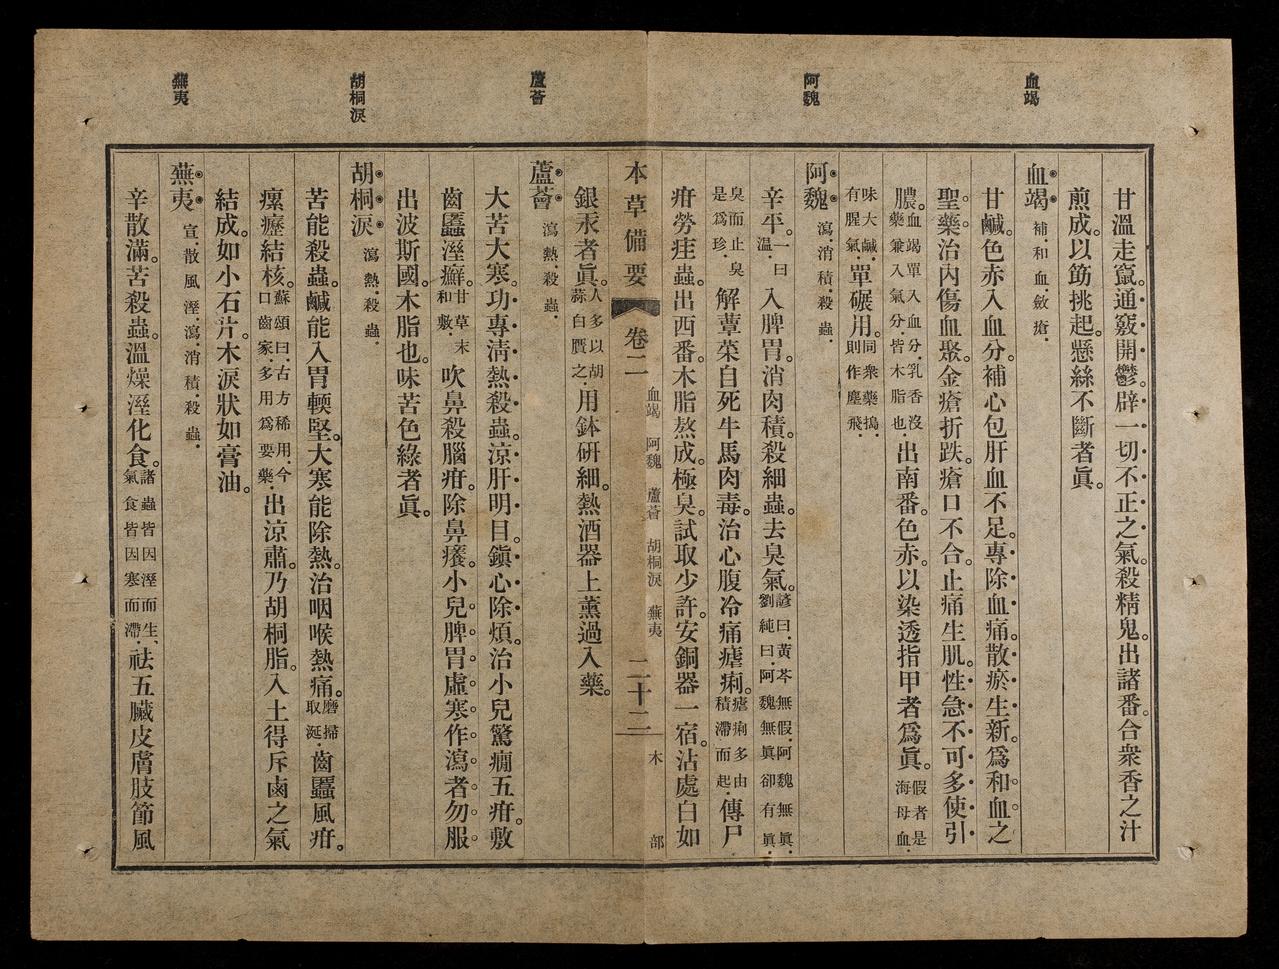 血竭
阿魏
蘆薈
胡桐淚
蕪夷
甘溫走竄。通竅開鬱。辟一切不正之氣。殺精鬼。出諸番。合衆香之汁
煎成。以筯挑起。懸絲不斷者眞。
血竭 補.和血.斂瘡.
甘鹹。色赤入血分。補心包肝血不足。專除血痛。散瘀生新。爲和血之
聖藥。治內傷血聚。金瘡折跌。瘡口不合。止痛生肌。性急不可多使。引
膿。血竭單入血分.乳香沒藥兼入氣分.皆木脂也.出南番。色赤。以染透指甲者爲眞。假者是海母血.
味大鹹.有腥氣.單碾用。同衆藥搗.則作塵飛.
阿魏 瀉.消積.殺蟲.
辛平。一曰溫.入脾胃。消肉積。殺細蟲。去臭氣。諺曰.黃芩無假.阿魏無眞.劉純曰.阿魏無眞卻有眞.
臭而止臭是爲珍.解蕈菜自死牛馬肉毒。治心腹冷痛瘧痢。瘧痢多由積滯而起.傳尸
疳勞疰蟲。出西番。木脂熬成。極臭。試取少許。安銅器一宿。沾處白如
本草備要 卷二 血竭 阿魏 蘆薈 胡桐淚 蕪夷 二十二 木部
銀汞者眞。人多以胡蒜白贋之.用鉢硏細。熱酒器上薰過入藥。
蘆薈 瀉.熱.殺蟲.
大苦大寒。功專淸熱殺蟲。涼肝明目。鎭心除煩。治小兒驚癇五疳。敷
齒䘌溼癬。甘草末和敷.吹鼻殺腦疳。除鼻癢。小兒脾胃虛寒作瀉者勿服
出波斯國。木脂也。味苦色綠者眞。
胡桐淚 瀉熱.殺蟲.
苦能殺蟲。鹹能入胃輭堅。大寒能除熱。治咽喉熱痛。磨掃取涎.齒䘌風疳。
瘰癧結核。蘇頌曰.古方稀用.今口齒家多用爲要藥.出涼肅。乃胡桐脂。入土得斥鹵之氣
結成。如小石片。木淚狀如膏油。
蕪夷 宣.散風溼.瀉.消積.殺蟲.
辛散滿。苦殺蟲。溫燥溼化食。諸蟲皆因溼而生、氣食皆因寒而滯.祛五臟皮膚肢節風